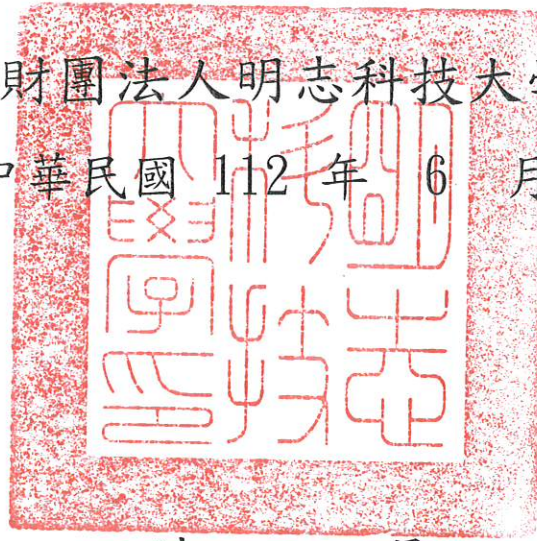 財團法人明志科技大學
中華民國 112 年 6 月
明志
科技
大學印